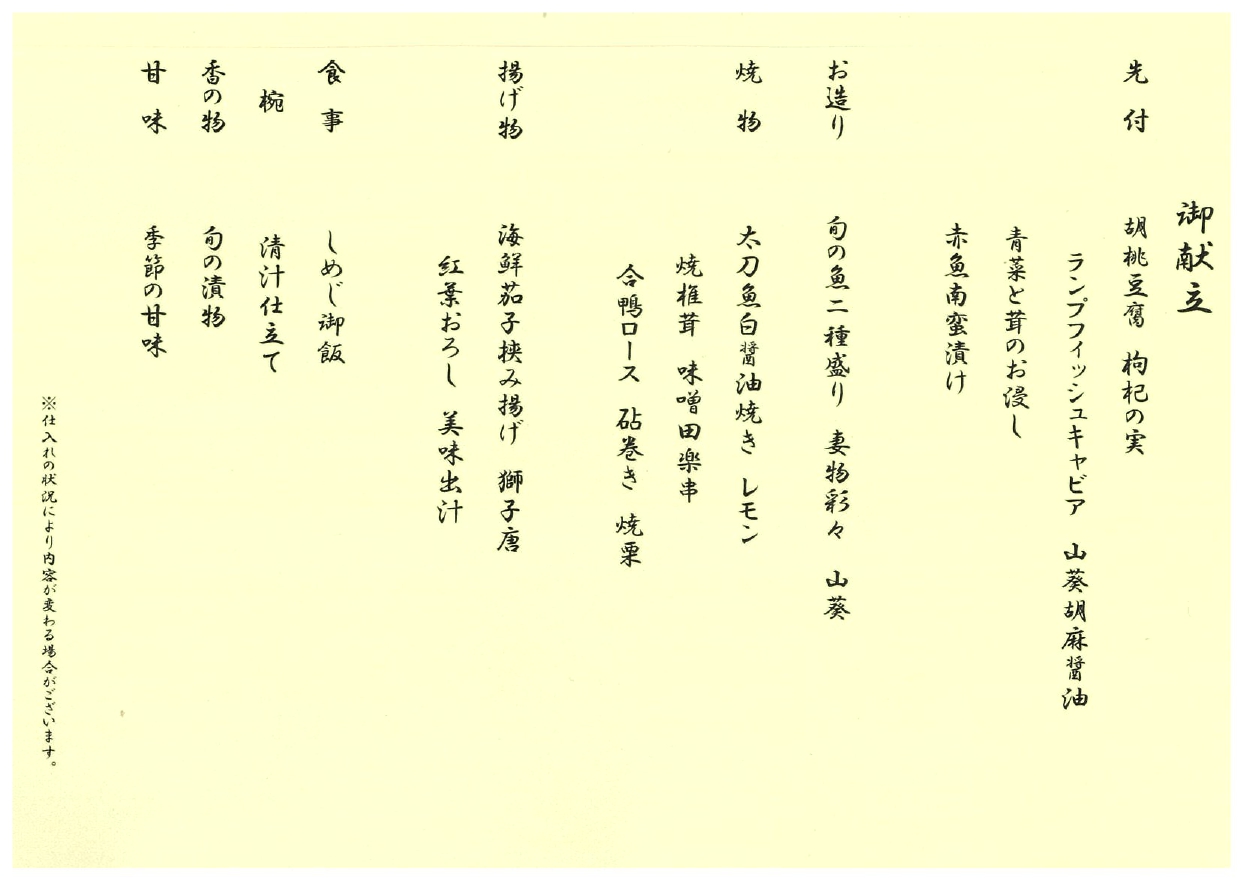 御献立
先付　胡桃豆腐　枸杞の実
ランプフィッシュキャビア　山葵胡麻醤油
青菜と茸のお浸し
赤魚南蛮漬け
お造り　旬の魚二種盛り　妻物彩々　山葵
焼物　太刀魚白醤油焼き　レモン
焼椎茸　味噌田楽串
合鴨ロース　砧巻き　焼栗
揚げ物　海鮮茄子挟み揚げ　獅子唐
紅葉おろし　美味出汁
食事　しめじ御飯
椀　清汁仕立て
香の物　旬の漬物
甘味　季節の甘味
※仕入れの状況により内容が変わる場合がございます。